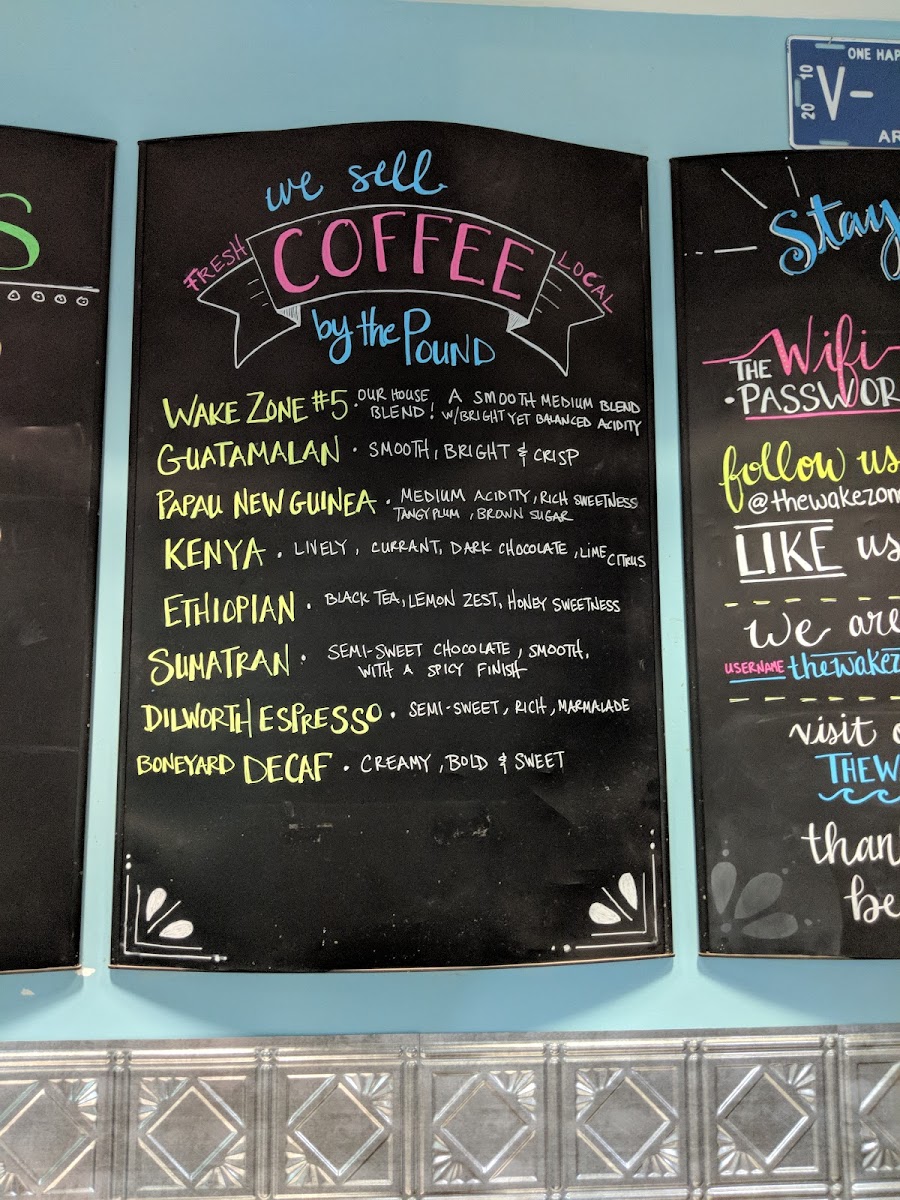 S
we sell
FRESH COFFEE LOCAL
by the POUND
WAKE ZONE #5 · OUR HOUSE BLEND! A SMOOTH MEDIUM BLEND
W/BRIGHT YET BALANCED ACIDITY
GUATAMALAN · SMOOTH, BRIGHT & CRISP
PAPAU NEW GUINEA · MEDIUM ACIDITY, RICH SWEETNESS
TANGY PLUM, BROWN SUGAR
KENYA · LIVELY, CURRANT, DARK CHOCOLATE, LIME CITRUS
ETHIOPIAN · BLACK TEA, LEMON ZEST, HONEY SWEETNESS
SUMATRAN · SEMI-SWEET CHOCOLATE, SMOOTH,
WITH A SPICY FINISH
DILWORTH ESPRESSO · SEMI-SWEET, RICH, MARMALADE
BONEYARD DECAF · CREAMY, BOLD & SWEET
ONE HAP
20 10 V-
AR
Stay
THE Wifi
·PASSWOR
follow us
@thewakezon
LIKE us
we are
USERNAME thewakez
visit o
THEW
than
be